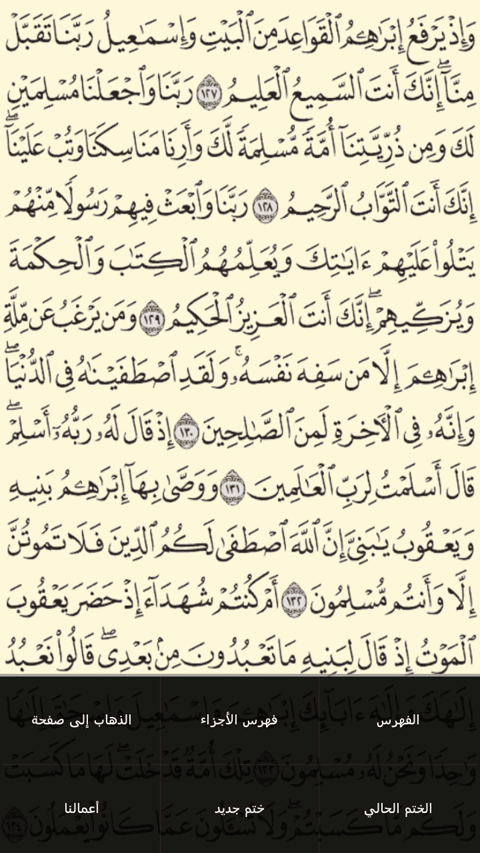 وَإِذْ يَرْفَعُ إِبْرَٰهِـۧمُ ٱلْقَوَاعِدَ مِنَ ٱلْبَيْتِ وَإِسْمَـٰعِيلُ رَبَّنَا تَقَبَّلْ
مِنَّآ ۖ إِنَّكَ أَنتَ ٱلسَّمِيعُ ٱلْعَلِيمُ ١٢٧ رَبَّنَا وَٱجْعَلْنَا مُسْلِمَيْنِ
لَكَ وَمِن ذُرِّيَّتِنَآ أُمَّةً مُّسْلِمَةً لَّكَ وَأَرِنَا مَنَاسِكَنَا وَتُبْ عَلَيْنَآ ۖ
إِنَّكَ أَنتَ ٱلتَّوَّابُ ٱلرَّحِيمُ ١٢٨ رَبَّنَا وَٱبْعَثْ فِيهِمْ رَسُولًا مِّنْهُمْ
يَتْلُوا۟ عَلَيْهِمْ ءَايَـٰتِكَ وَيُعَلِّمُهُمُ ٱلْكِتَـٰبَ وَٱلْحِكْمَةَ
وَيُزَكِّيهِمْ ۚ إِنَّكَ أَنتَ ٱلْعَزِيزُ ٱلْحَكِيمُ ١٢٩ وَمَن يَرْغَبُ عَن مِّلَّةِ
إِبْرَٰهِـۧمَ إِلَّا مَن سَفِهَ نَفْسَهُۥ ۚ وَلَقَدِ ٱصْطَفَيْنَـٰهُ فِى ٱلدُّنْيَا ۖ
وَإِنَّهُۥ فِى ٱلْـَٔاخِرَةِ لَمِنَ ٱلصَّـٰلِحِينَ ١٣٠ إِذْ قَالَ لَهُۥ رَبُّهُۥٓ أَسْلِمْ ۖ
قَالَ أَسْلَمْتُ لِرَبِّ ٱلْعَـٰلَمِينَ ١٣١ وَوَصَّىٰ بِهَآ إِبْرَٰهِـۧمُ بَنِيهِ
وَيَعْقُوبُ يَـٰبَنِىَّ إِنَّ ٱللَّهَ ٱصْطَفَىٰ لَكُمُ ٱلدِّينَ فَلَا تَمُوتُنَّ
إِلَّا وَأَنتُم مُّسْلِمُونَ ١٣٢ أَمْ كُنتُمْ شُهَدَآءَ إِذْ حَضَرَ يَعْقُوبَ
ٱلْمَوْتُ إِذْ قَالَ لِبَنِيهِ مَا تَعْبُدُونَ مِنۢ بَعْدِى ۖ قَالُوا۟ نَعْبُدُ
إِلَـٰهَكَ وَإِلَـٰهَ ءَابَآئِكَ إِبْرَٰهِـۧمَ وَإِسْمَـٰعِيلَ وَإِسْحَـٰقَ إِلَـٰهًا
الفهرس فهرس الأجزاء الذهاب إلى صفحة
وَٰحِدًا وَنَحْنُ لَهُۥ مُسْلِمُونَ ١٣٣ تِلْكَ أُمَّةٌ قَدْ خَلَتْ ۖ لَهَا مَا كَسَبَتْ
الختم الحالي ختم جديد أعمالنا
وَلَكُم مَّا كَسَبْتُمْ ۖ وَلَا تُسْـَٔلُونَ عَمَّا كَانُوا۟ يَعْمَلُونَ ١٣٤